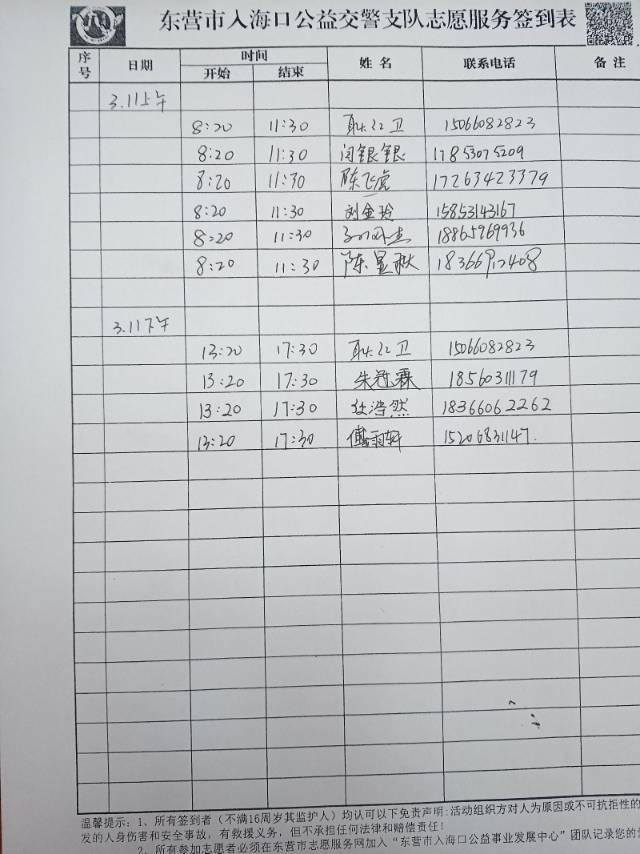 东营市入海口公益交警支队志愿服务签到表
序号 日期 时间 姓名 联系电话 备注
开始 结束
3.11上午
8:20 11:30 耿红卫 15066082823
8:20 11:30 闵银银 17853075209
8:20 11:30 陈飞虎 17263423379
8:20 11:30 刘金玲 15853143167
8:20 11:30 18865969936
8:20 11:30 陈显秋
3.11下午
13:20 17:30 耿红卫 15066082823
13:20 17:30 朱冠霖 18560311179
13:20 17:30 浩然 18366062262
13:20 17:30 傅羽轩 15206831147.
温馨提示：1、所有签到者（不满16周岁其监护人）均认可以下免责声明：活动组织方对人为原因或不可抗拒性的
发的人身伤害和安全事故，有救援义务，但不承担任何法律和赔偿责任！
2、所有参加志愿者必须在东营市志愿服务网加入“东营市入海口公益事业发展中心”团队记录您的